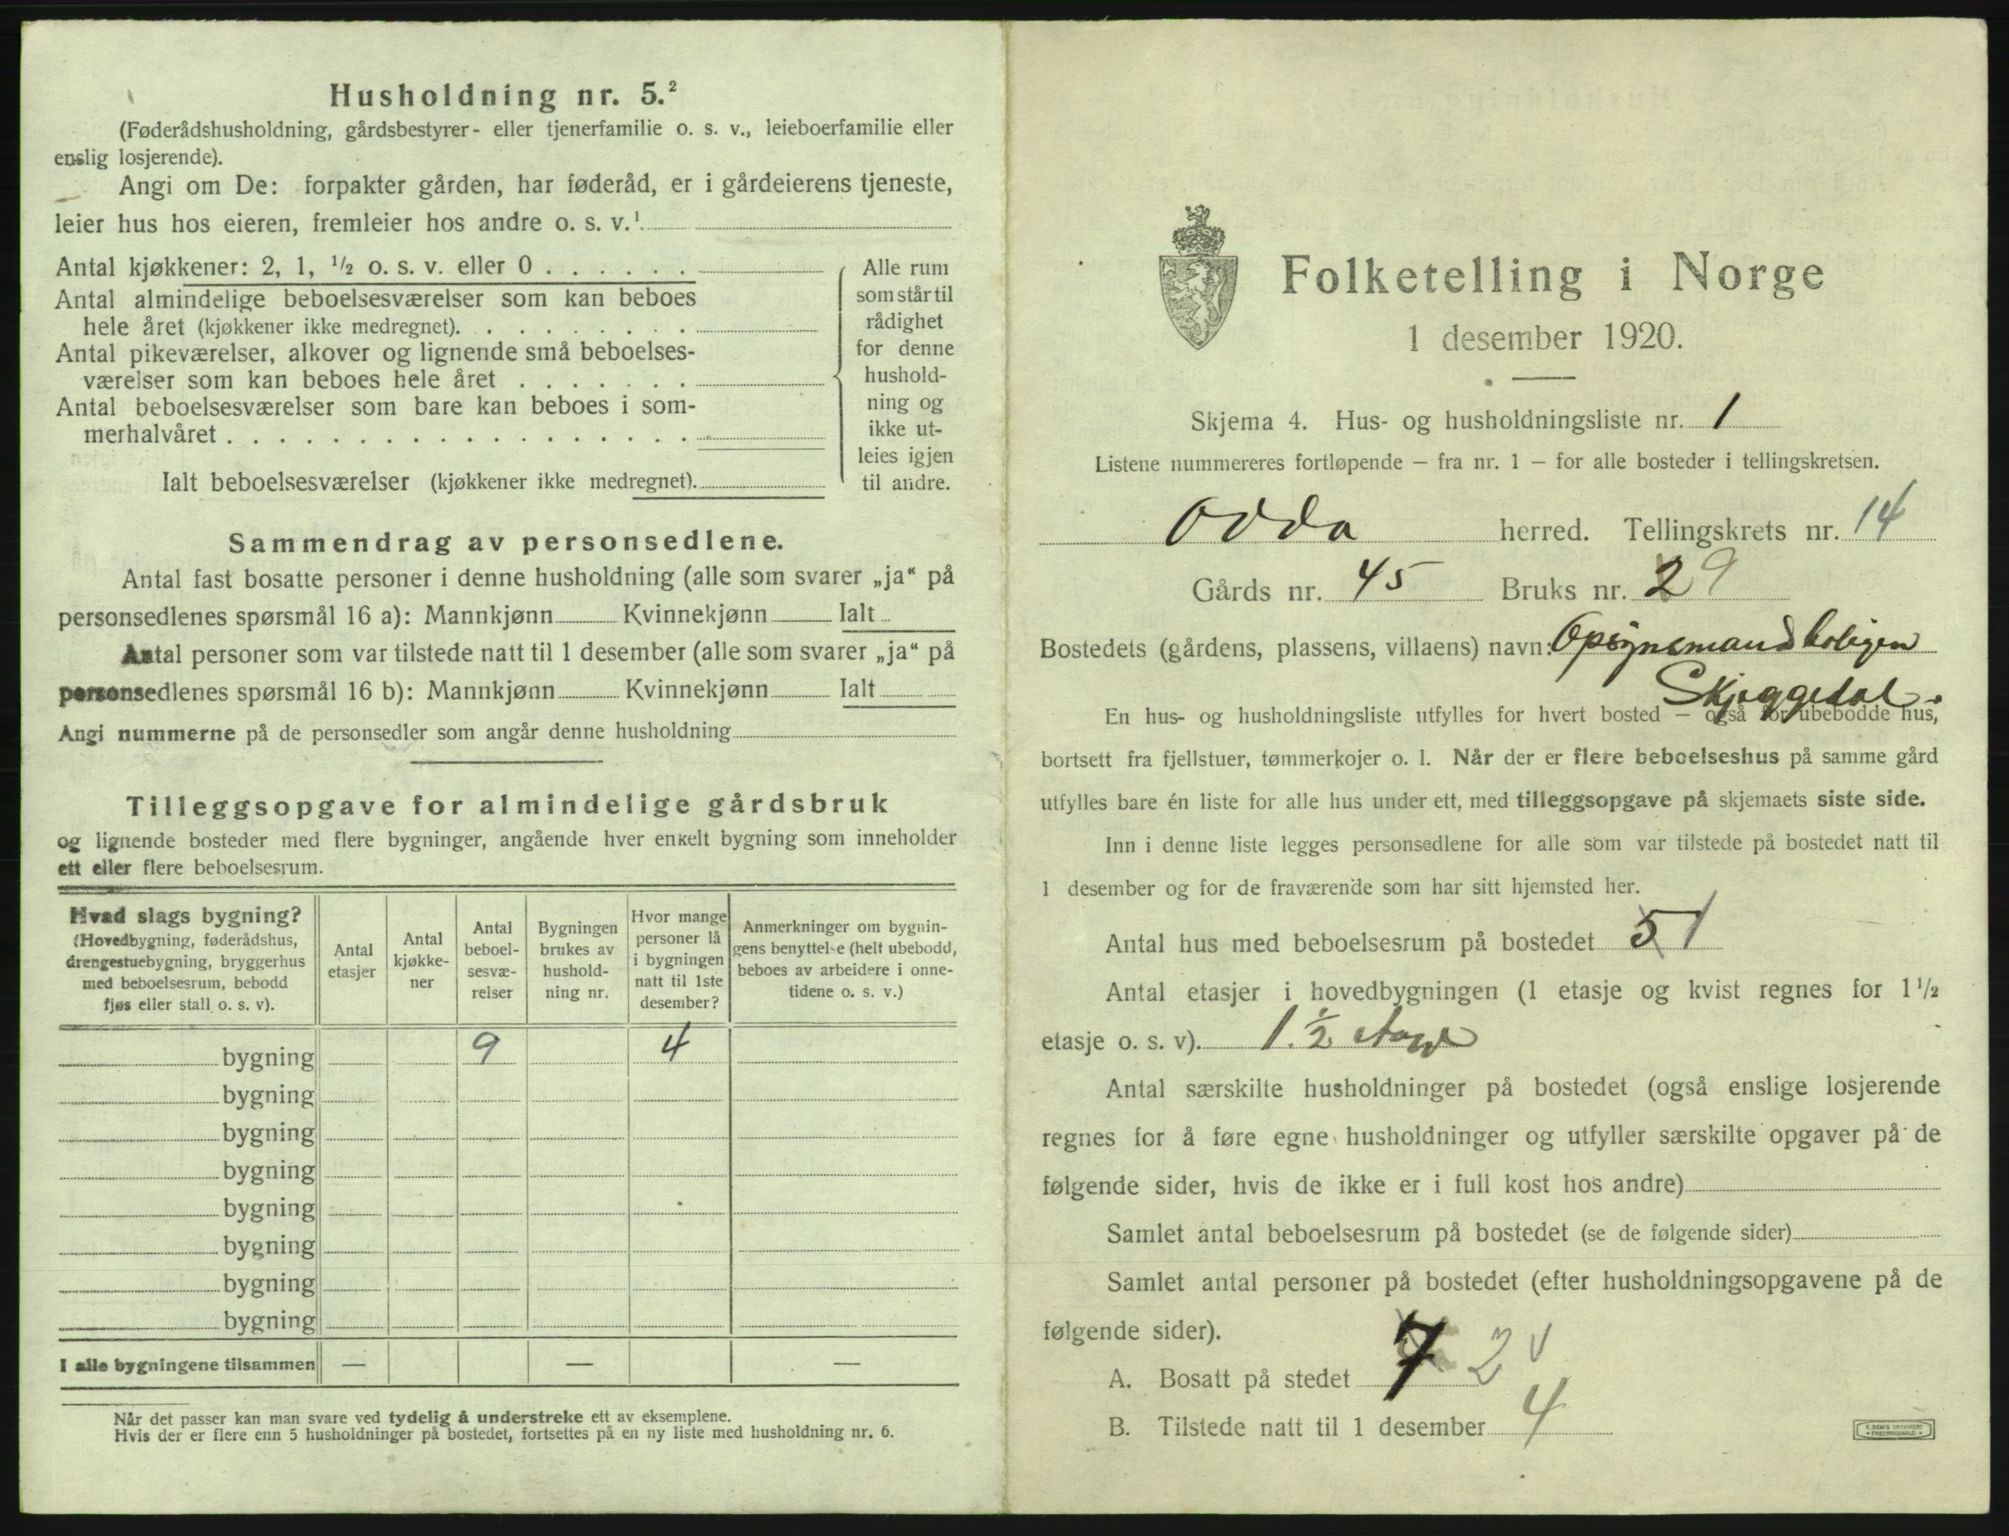 Husholdning nr. 5.²
(Føderådshusholdning, gårdsbestyrer- eller tjenerfamilie o. s. v., leieboerfamilie eller
enslig losjerende).
Angi om De: forpakter gården, har føderåd, er i gårdeierens tjeneste,
leier hus hos eieren, fremleier hos andre o. s. v.¹
Antal kjøkkener: 2, 1, ½ o. s. v. eller 0 . . . . . .
Antal almindelige beboelsesværelser som kan beboes
hele året (kjøkkener ikke medregnet). . . . . . . . .
Antal pikeværelser, alkover og lignende små beboelses-
værelser som kan beboes hele året . . . . . . .
Antal beboelsesværelser som bare kan beboes i som-
merhalvåret . . . . . . . . . . . . . . . . . .
Ialt beboelsesværelser (kjøkkener ikke medregnet).
Alle rum
som står til
rådighet
for denne
hushold-
ning og
ikke ut-
leies igjen
til andre.
Sammendrag av personsedlene.
Antal fast bosatte personer i denne husholdning (alle som svarer „ja“ på
personsedlenes spørsmål 16 a): Mannkjønn Kvinnekjønn Ialt
Antal personer som var tilstede natt til 1 desember (alle som svarer „ja“ på
personsedlenes spørsmål 16 b): Mannkjønn Kvinnekjønn Ialt
Angi nummerne på de personsedler som angår denne husholdning
Tilleggsopgave for almindelige gårdsbruk
og lignende bosteder med flere bygninger, angående hver enkelt bygning som inneholder
ett eller flere beboelsesrum.
Hvad slags bygning?
(Hovedbygning, føderådshus,
drengestuebygning, bryggerhus
med beboelsesrum, bebodd
fjøs eller stall o. s. v).
Antal
etasjer
Antal
kjøkke-
ner
Antal
beboel-
sesvæ-
relser
Bygningen
brukes av
hushold-
ning nr.
Hvor mange
personer lå
i bygningen
natt til 1ste
desember?
Anmerkninger om bygnin-
gens benyttelse (helt ubebodd,
beboes av arbeidere i onne-
tidene o. s. v.)
bygning 9 4
bygning
bygning
bygning
bygning
bygning
bygning
bygning
I alle bygningene tilsammen — — —
Når det passer kan man svare ved tydelig å understreke ett av eksemplene.
Hvis der er flere enn 5 husholdninger på bostedet, fortsettes på en ny liste med husholdning nr. 6.
Folketelling i Norge
1 desember 1920.
Skjema 4. Hus- og husholdningsliste nr. 1
Listene nummereres fortløpende – fra nr. 1 – for alle bosteder i tellingskretsen.
Odda herred. Tellingskrets nr. 14
Gårds nr. 45 Bruks nr. 2 9
Bostedets (gårdens, plassens, villaens) navn: Opsynsmandsboligen
Skjeggedal.
En hus- og husholdningsliste utfylles for hvert bosted – også for ubebodde hus,
bortsett fra fjellstuer, tømmerkojer o. l. Når der er flere beboelseshus på samme gård
utfylles bare én liste for alle hus under ett, med tilleggsopgave på skjemaets siste side.
Inn i denne liste legges personsedlene for alle som var tilstede på bostedet natt til
1 desember og for de fraværende som har sitt hjemsted her.
Antal hus med beboelsesrum på bostedet 5 1
Antal etasjer i hovedbygningen (1 etasje og kvist regnes for 1½
etasje o. s. v). 1. ½ etage
Antal særskilte husholdninger på bostedet (også enslige losjerende
regnes for å føre egne husholdninger og utfyller særskilte opgaver på de
følgende sider, hvis de ikke er i full kost hos andre)
Samlet antal beboelsesrum på bostedet (se de følgende sider)
Samlet antal personer på bostedet (efter husholdningsopgavene på de
følgende sider).
A. Bosatt på stedet 7 2
B. Tilstede natt til 1 desember 4